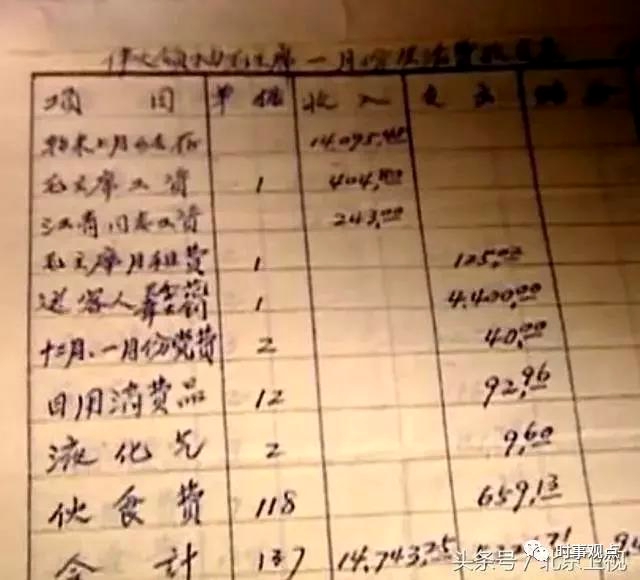 伟大领袖毛主席一月份生活费
项目 单据 收入 支出 结余
上月 14.095,45
毛主席工资 1 404,80
江青同志工资 243,00
毛主席月租费 1 125,02
送客人 1 4.400,00
十二月、一月份党费 2 40,00
日用消费品 12 92,96
液化气 2 9,60
伙食费 118 659,13
合计 137 14,743,25 71
时事观点
头条号/北京卫视